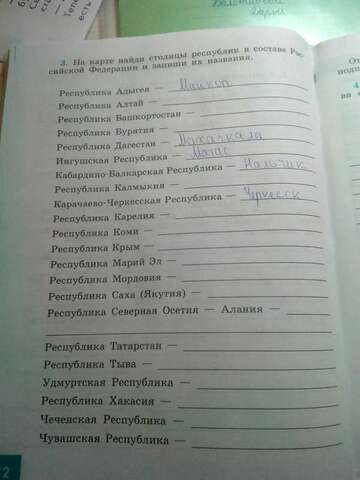 Валентиновой
Дарьи
3. На карте найди столицы республик в составе Рос-
сийской Федерации и запиши их названия.
Республика Адыгея — Майкоп
Республика Алтай —
Республика Башкортостан —
Республика Бурятия —
Республика Дагестан — Махачкала
Ингушская Республика — Магас
Кабардино-Балкарская Республика — Нальчик
Республика Калмыкия —
Карачаево-Черкесская Республика — Черкесск
Республика Карелия —
Республика Коми —
Республика Крым —
Республика Марий Эл —
Республика Мордовия —
Республика Саха (Якутия) —
Республика Северная Осетия — Алания —
Республика Татарстан —
Республика Тыва —
Удмуртская Республика —
Республика Хакасия —
Чеченская Республика —
Чувашская Республика —